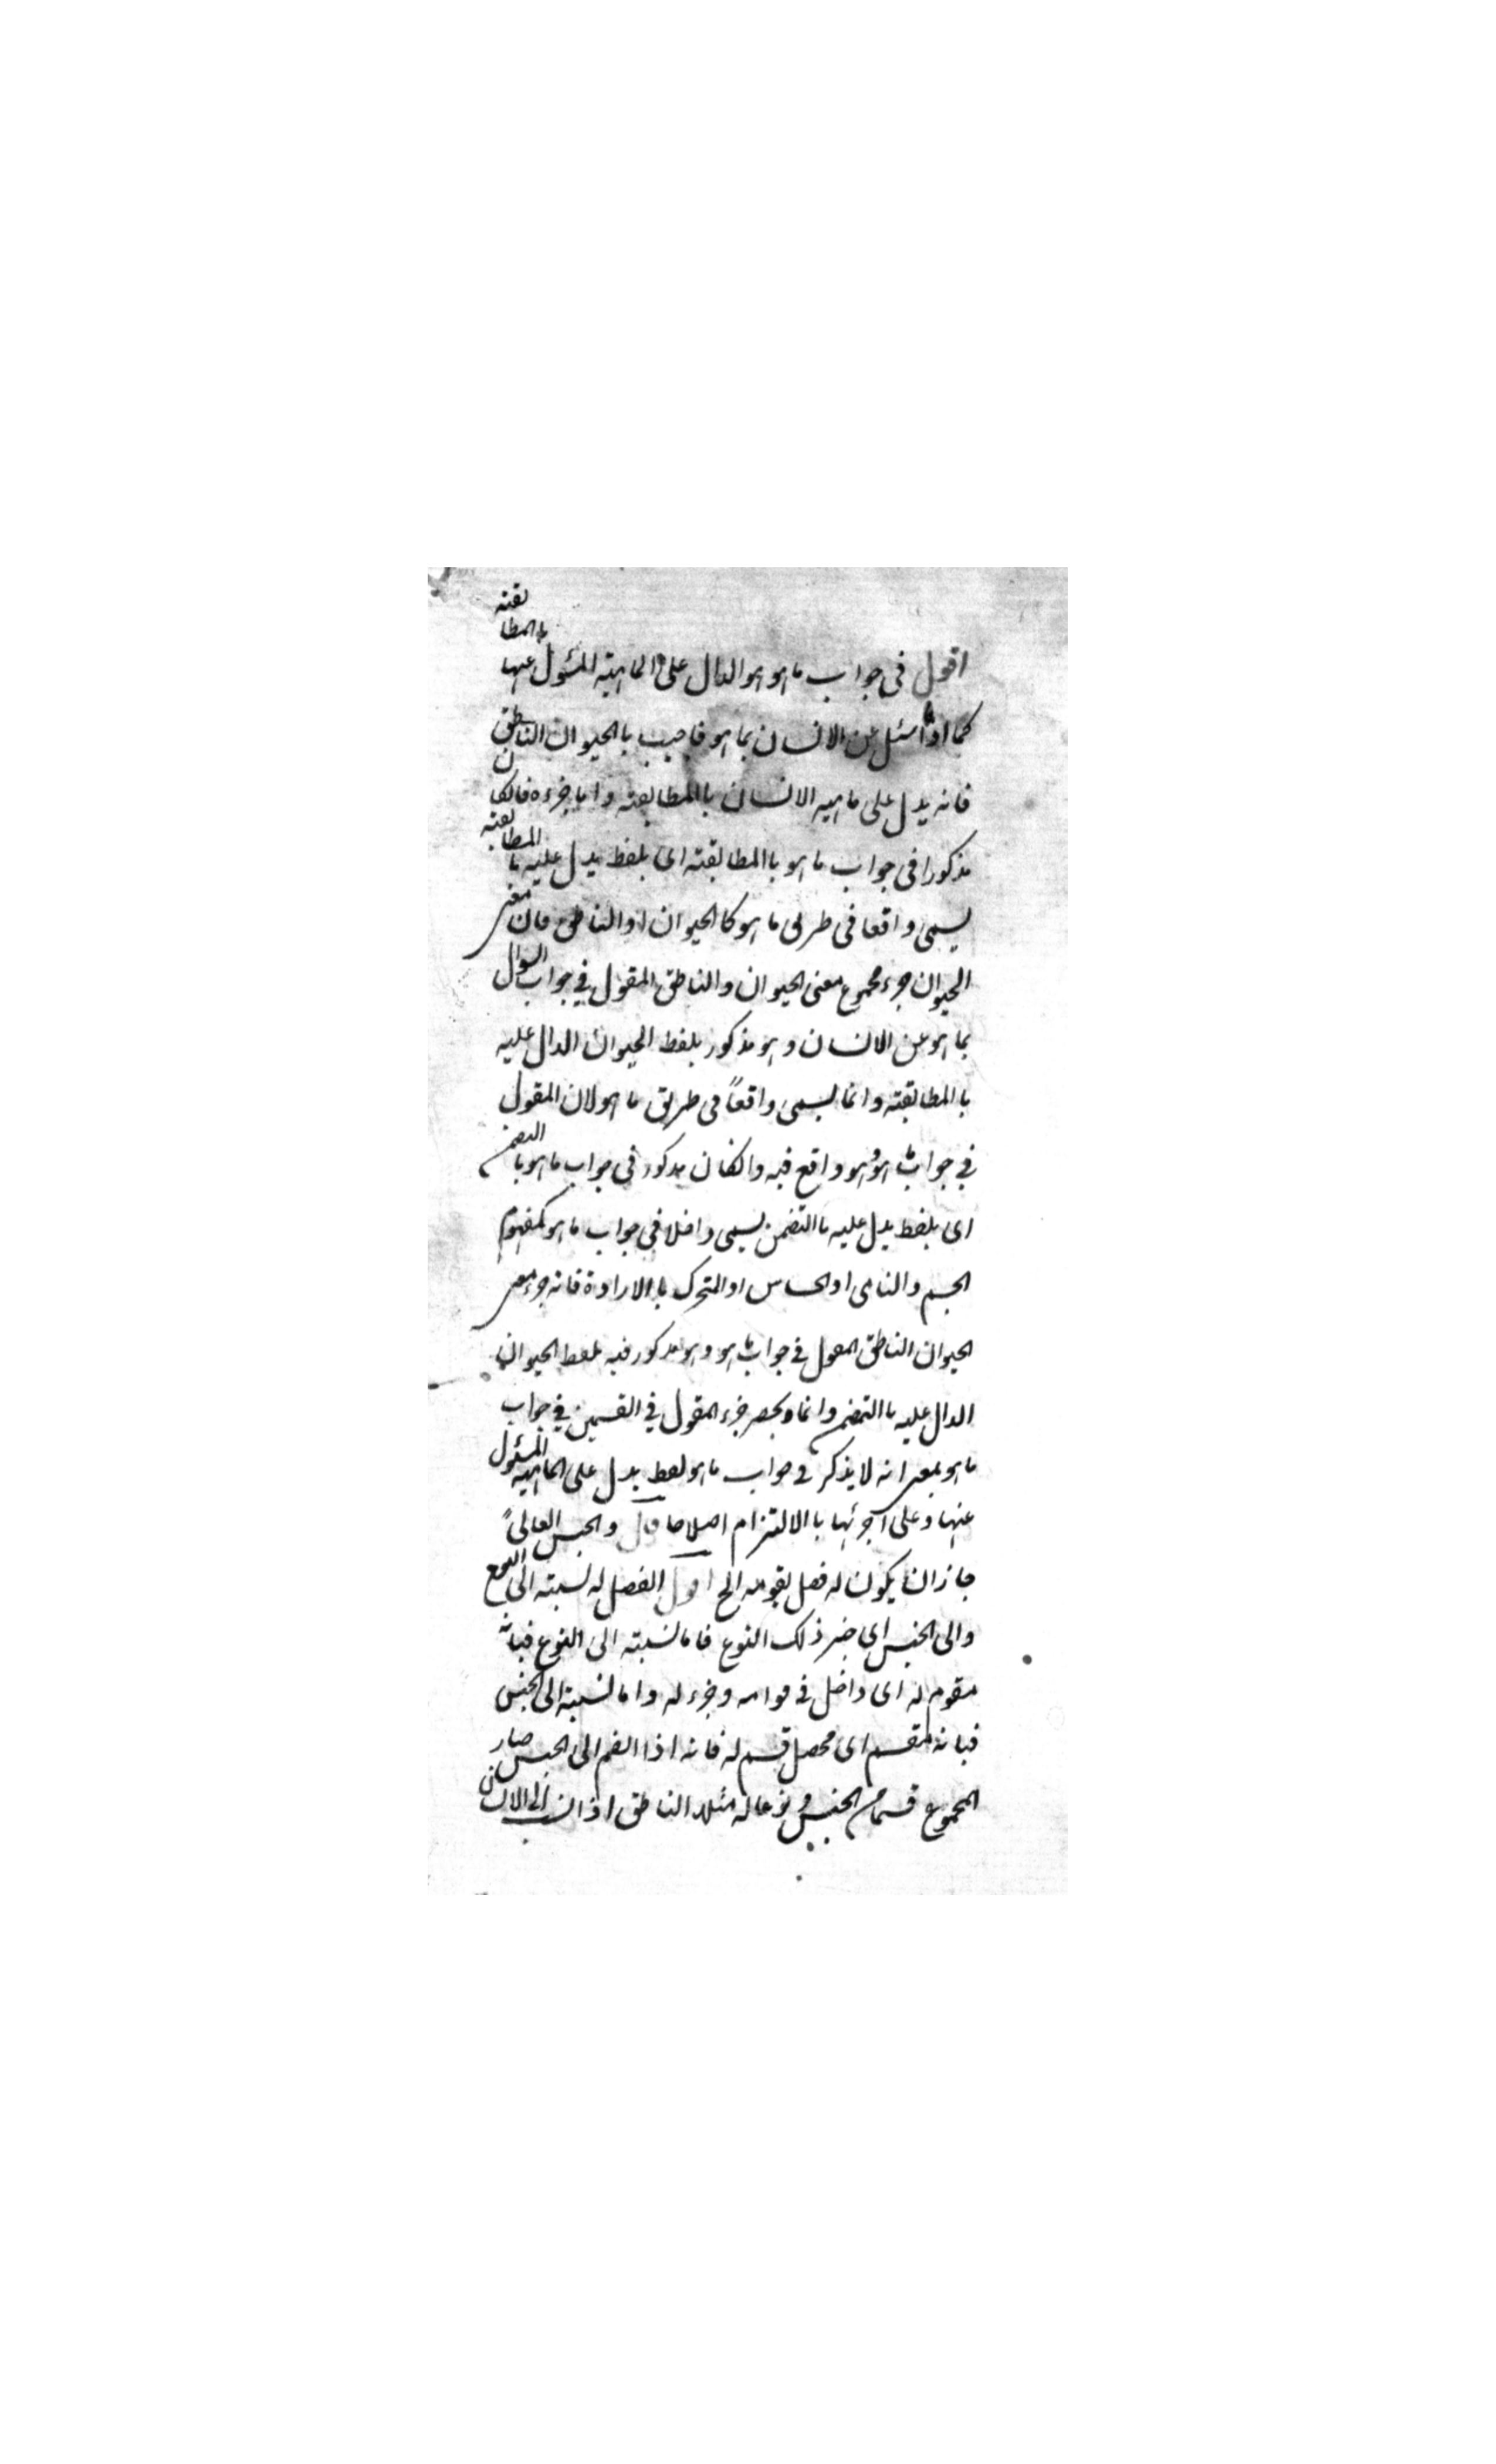 اقول فى جواب ما هو هو الدال على الماهية المسئول عنها بالمطابقة
كما اذا سئل عن الانسان بما هو فاجيب بالحيوان الناطق
فانه يدل على ماهية الانسان باالمطابقته واما جزءه فانكان
مذكورا فى جواب ما هو باالمطابقته اى بلفظ يدل عليه باالمطابقته
يسمى واقعا فى طريق ما هو كاالحيوان او الناطق فان معنى
الحيوان جزء مجموع معنى الحيوان والناطق المقول في جواب السوال
بما هو عن الانسان وهو مذكور بلفظ الحيوان الدال عليه
باالمطابقته وانما يسمى واقعاً فى طريق ما هو لان المقول
في جواب ما هو وهو واقع فيه وانكان مذكورا فى جواب ما هو باالتضمن
اى بلفظ يدل عليه باالتضمن يسمى داخلا في جواب ما هو كمفهوم
الجسم والنامى او الحاس او المتحرك باالارادة فانه جزء معنى
الحيوان الناطق المقول في جواب ما هو وهو مذكور فيه بلفظ الحيوان
الدال عليه باالتضمن وانما وبحصر جزء المقول في القسمين في جواب
ما هو بمعنى انه لا يذكر في جواب ما هو لفظ يدل على الماهية المسئول
عنها وعلى اجزئها باالالتزام اصلاحا قال والجنس العالى
جاز ان يكون له فصل يقومه الخ اقول الفصل له نسبته الى النوع
والى الجنس اى جنس ذلك النوع فاما نسبته الى النوع فبانه
مقوم له اى داخل في قوامه وجزء له واما نسبته الى الجنس
فبانه مقسم اى محصل قسم له فانه اذا انضم الى الجنس صار
المجموع قسما من الجنس ونوعا له مثلا الناطق اذا نسب الى الانسان